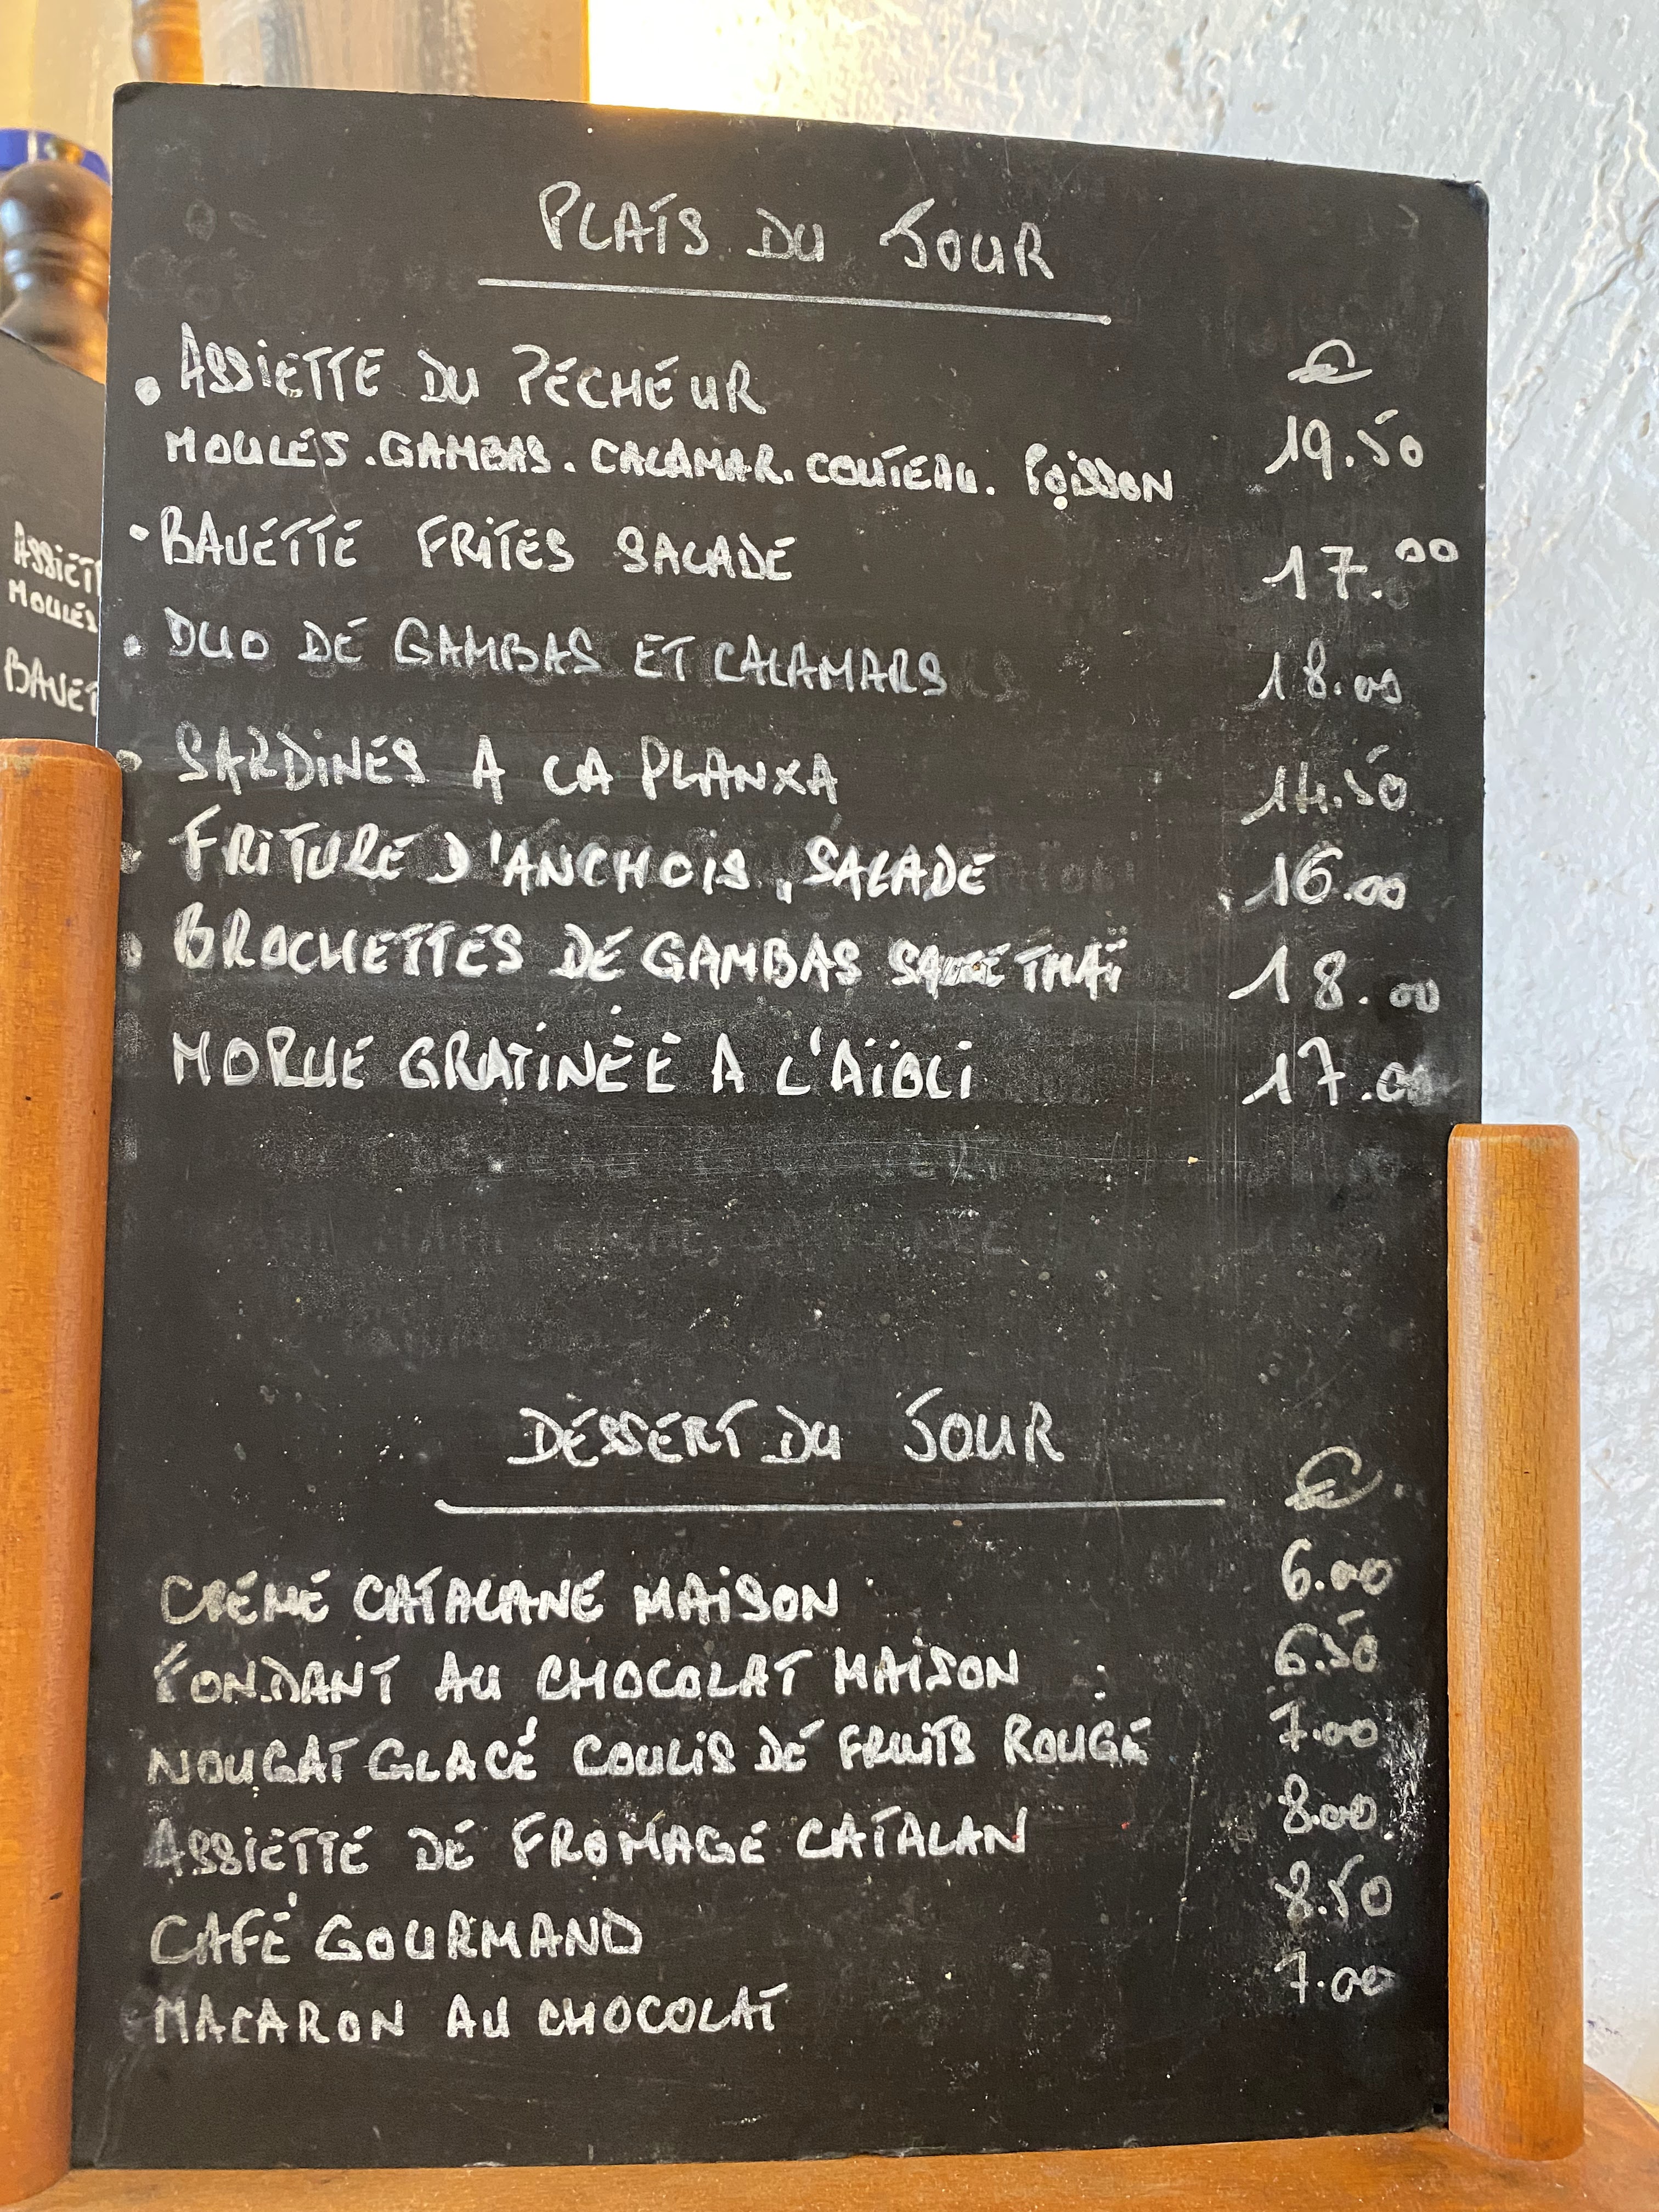 PLATS DU JOUR
€
• ASSIETTE DU PÉCHÉUR
MOULES . GAMBAS . CALAMAR . COUTEAU . POISSON 19.50
• BAVETTE FRITES SALADE 17.00
• DUO DE GAMBAS ET CALAMARS 18.00
• SARDINES A LA PLANXA 14.50
• FRITURE D'ANCHOIS, SALADE 16.00
• BROCHETTES DE GAMBAS SAUCE THAÏ 18.00
MORUE GRATINÉE A L'AÏOLI 17.00
DESSERT DU JOUR
€
CRÉME CATALANE MAISON 6.00
FONDANT AU CHOCOLAT MAISON 6.50
NOUGAT GLACÉ COULIS DE FRUITS ROUGE 7.00
ASSIETTE DE FROMAGE CATALAN 8.00
CAFÉ GOURMAND 8.50
MACARON AU CHOCOLAT 7.00
ASSIETT
MOULES
BAVET